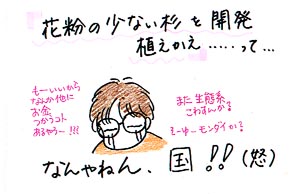 花粉の少ない杉を開発
植えかえ……って…
もーいいから
なんか他に
お金
つかうコト
あるやろー!!!
また生態系
こわすんか?
そーゆーモンダイか?
なんやねん、国!!(怒)